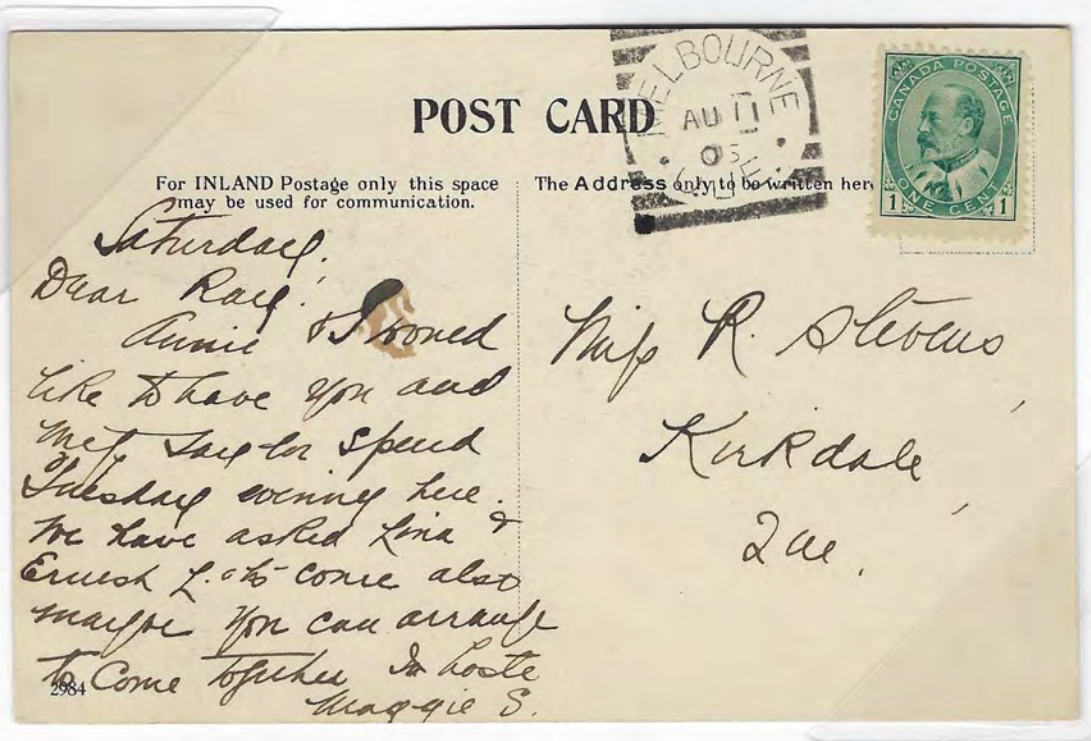 POST CARD
MELBOURNE
AU 11
05
QUE.
CANADA POSTAGE
ONE CENT
1 1
For INLAND Postage only this space
may be used for communication.
The Address only to be written here
Saturday.
Dear Ray!
Annie & I woned
like to have you and
Miss Taylor spend
Tuesday evening here.
We have asked Lina &
Ernest L. to come also
maybe you can arrange
to come together In haste
Maggie S.
2984
Miss R. Stevens,
Kirkdale,
Que.